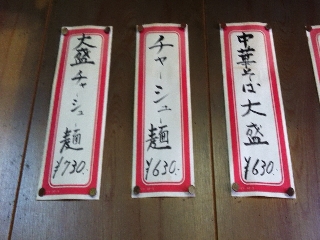 中華そば大盛
¥630.
チャーシュー麺
¥630.
大盛チャーシュー麺
¥730.